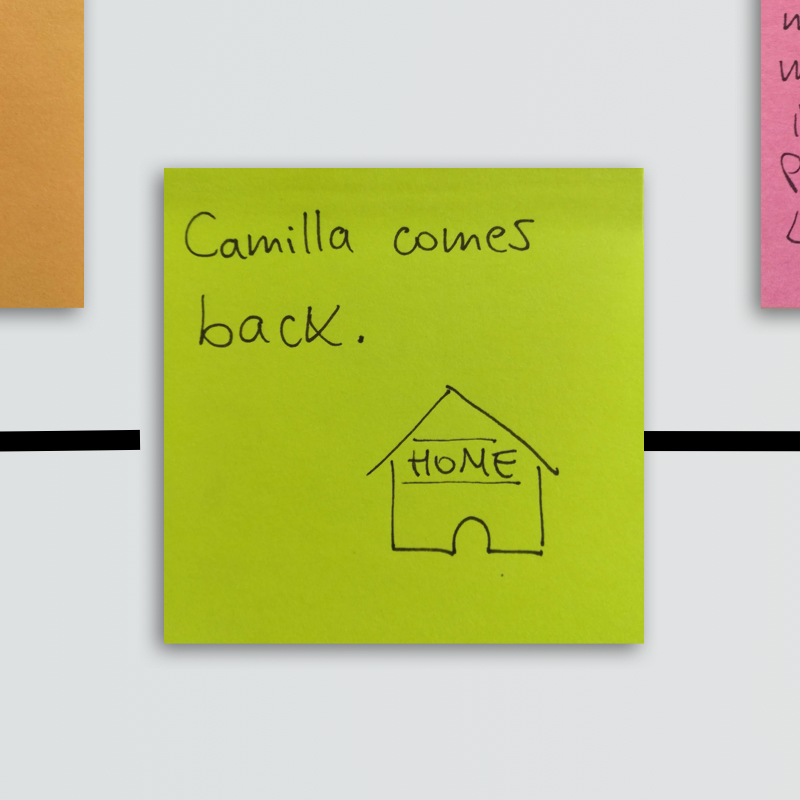 Camilla comes
back.
HOME